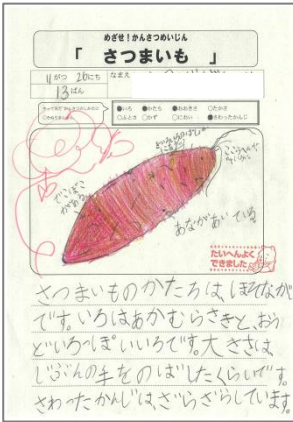 めざせ！かんさつめいじん
「 さつまいも 」
11がつ 26にち なまえ
13ばん
●いろ ●かたち ●おおきさ ○たかさ
○ふとさ ○かず ○におい ●さわったかんじ
でこぼこ
がある。
あながあいている。
たいへんよく
できました
さつまいものかたちは、ほそなが
です。いろはあかむらさきと、おう
どいろっぽいいろです。大きさは、
じぶんの手をのばしたくらいです。
さわったかんじは、ざらざらしています。